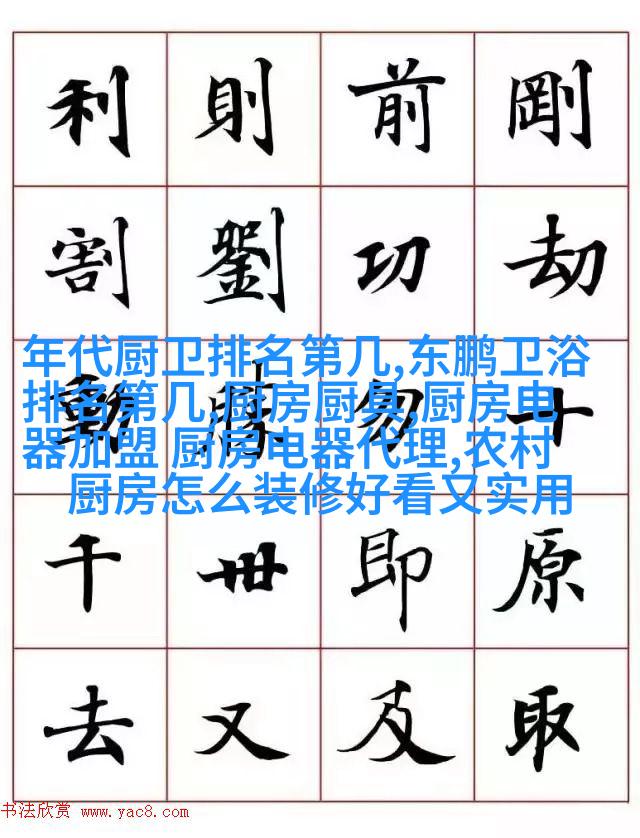 利 則 前 剛
割 劉 功 劫
年代厨卫排名第几,东鹏卫浴
排名第几,厨房厨具,厨房电
器加盟 厨房电器代理,农村
厨房怎么装修好看又实用
動 勿 十
千 卌 即 原
去 又 及 取
书法欣赏 www.yac8.com